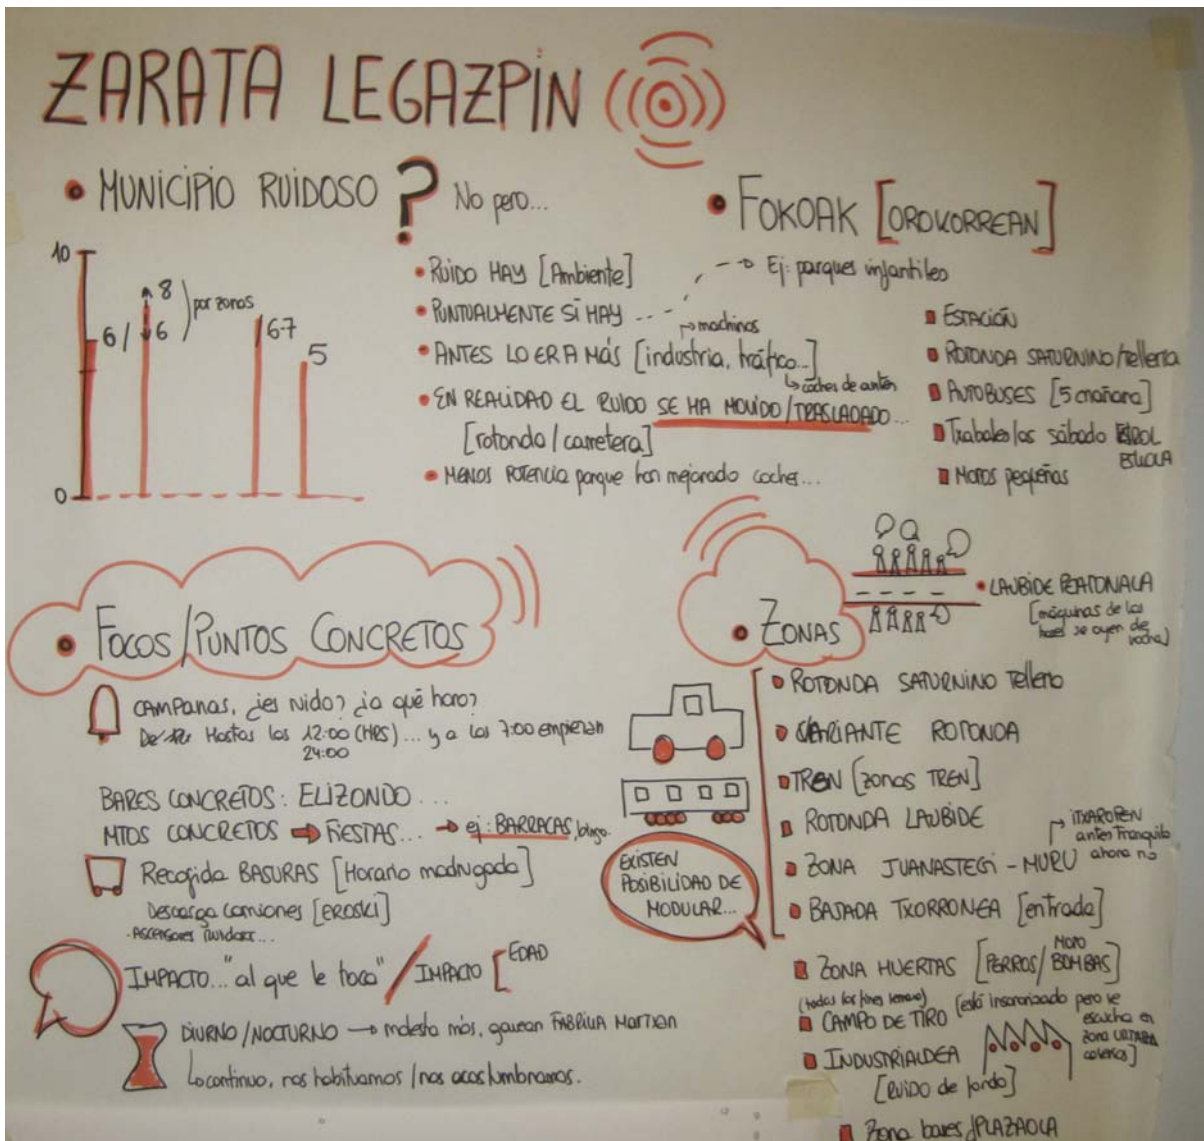 ZARATA LEGAZPIN
• MUNICIPIO RUIDOSO ? No pero...
10
6/
8
6
por zonas
6-7
5
0
• RUIDO HAY [Ambiente]
• PUNTUALMENTE SÍ HAY
• ANTES LO ERA MÁS [industria, tráfico...]
machinos
coches de antes
• EN REALIDAD EL RUIDO SE HA MOVIDO/TRASLADADO...
[rotonda/carretera]
• MENOS POTENCIA porque han mejorado coches...
• FOKOAK [OROKORREAN]
Ej: parques infantiles
ESTACIÓN
ROTONDA SATURNINO/telleria
AUTOBUSES [5 mañana]
Trabales los sábado
ESKOLA
MOTOS pequeñas
• FOCOS/PUNTOS CONCRETOS
CAMPANAS, ¿es ruido? ¿a qué hora?
Hastas las 12:00 (HRS)... y a las 7:00 empiezan
24:00
BARES CONCRETOS: ELIZONDO...
MTOS CONCRETOS → FIESTAS... → ej: BARRACAS,
Recogida BASURAS [Horario madrugada]
Descarga camiones [EROSKI]
- ASCENSORES ruidosos...
IMPACTO... "al que le toca" / IMPACTO [EDAD
DIURNO/NOCTURNO → molesta más, gauean FABRIKA MARTXAN
Lo continuo, nos habituamos/nos acostumbramos.
• ZONAS
• LAUBIDE PEATONALA
[máquinas de los
bares se oyen de
noche]
• ROTONDA SATURNINO Telleria
VARIANTE ROTONDA
TREN [zonas TREN]
ROTONDA LAUBIDE
ZONA JUANASTEGI - MURU
ITXAROPEN
antes tranquilo
ahora no
BAJADA TXORRONEA [entrada]
EXISTEN
POSIBILIDAD DE
MODULAR...
ZONA HUERTAS [PERROS/MOTO BOMBAS]
(todos los fines semana)
CAMPO DE TIRO (está insonorizado pero se
escucha en
zona
INDUSTRIALDEA
[RUIDO de fondo]
Zona bares/PLAZAOLA